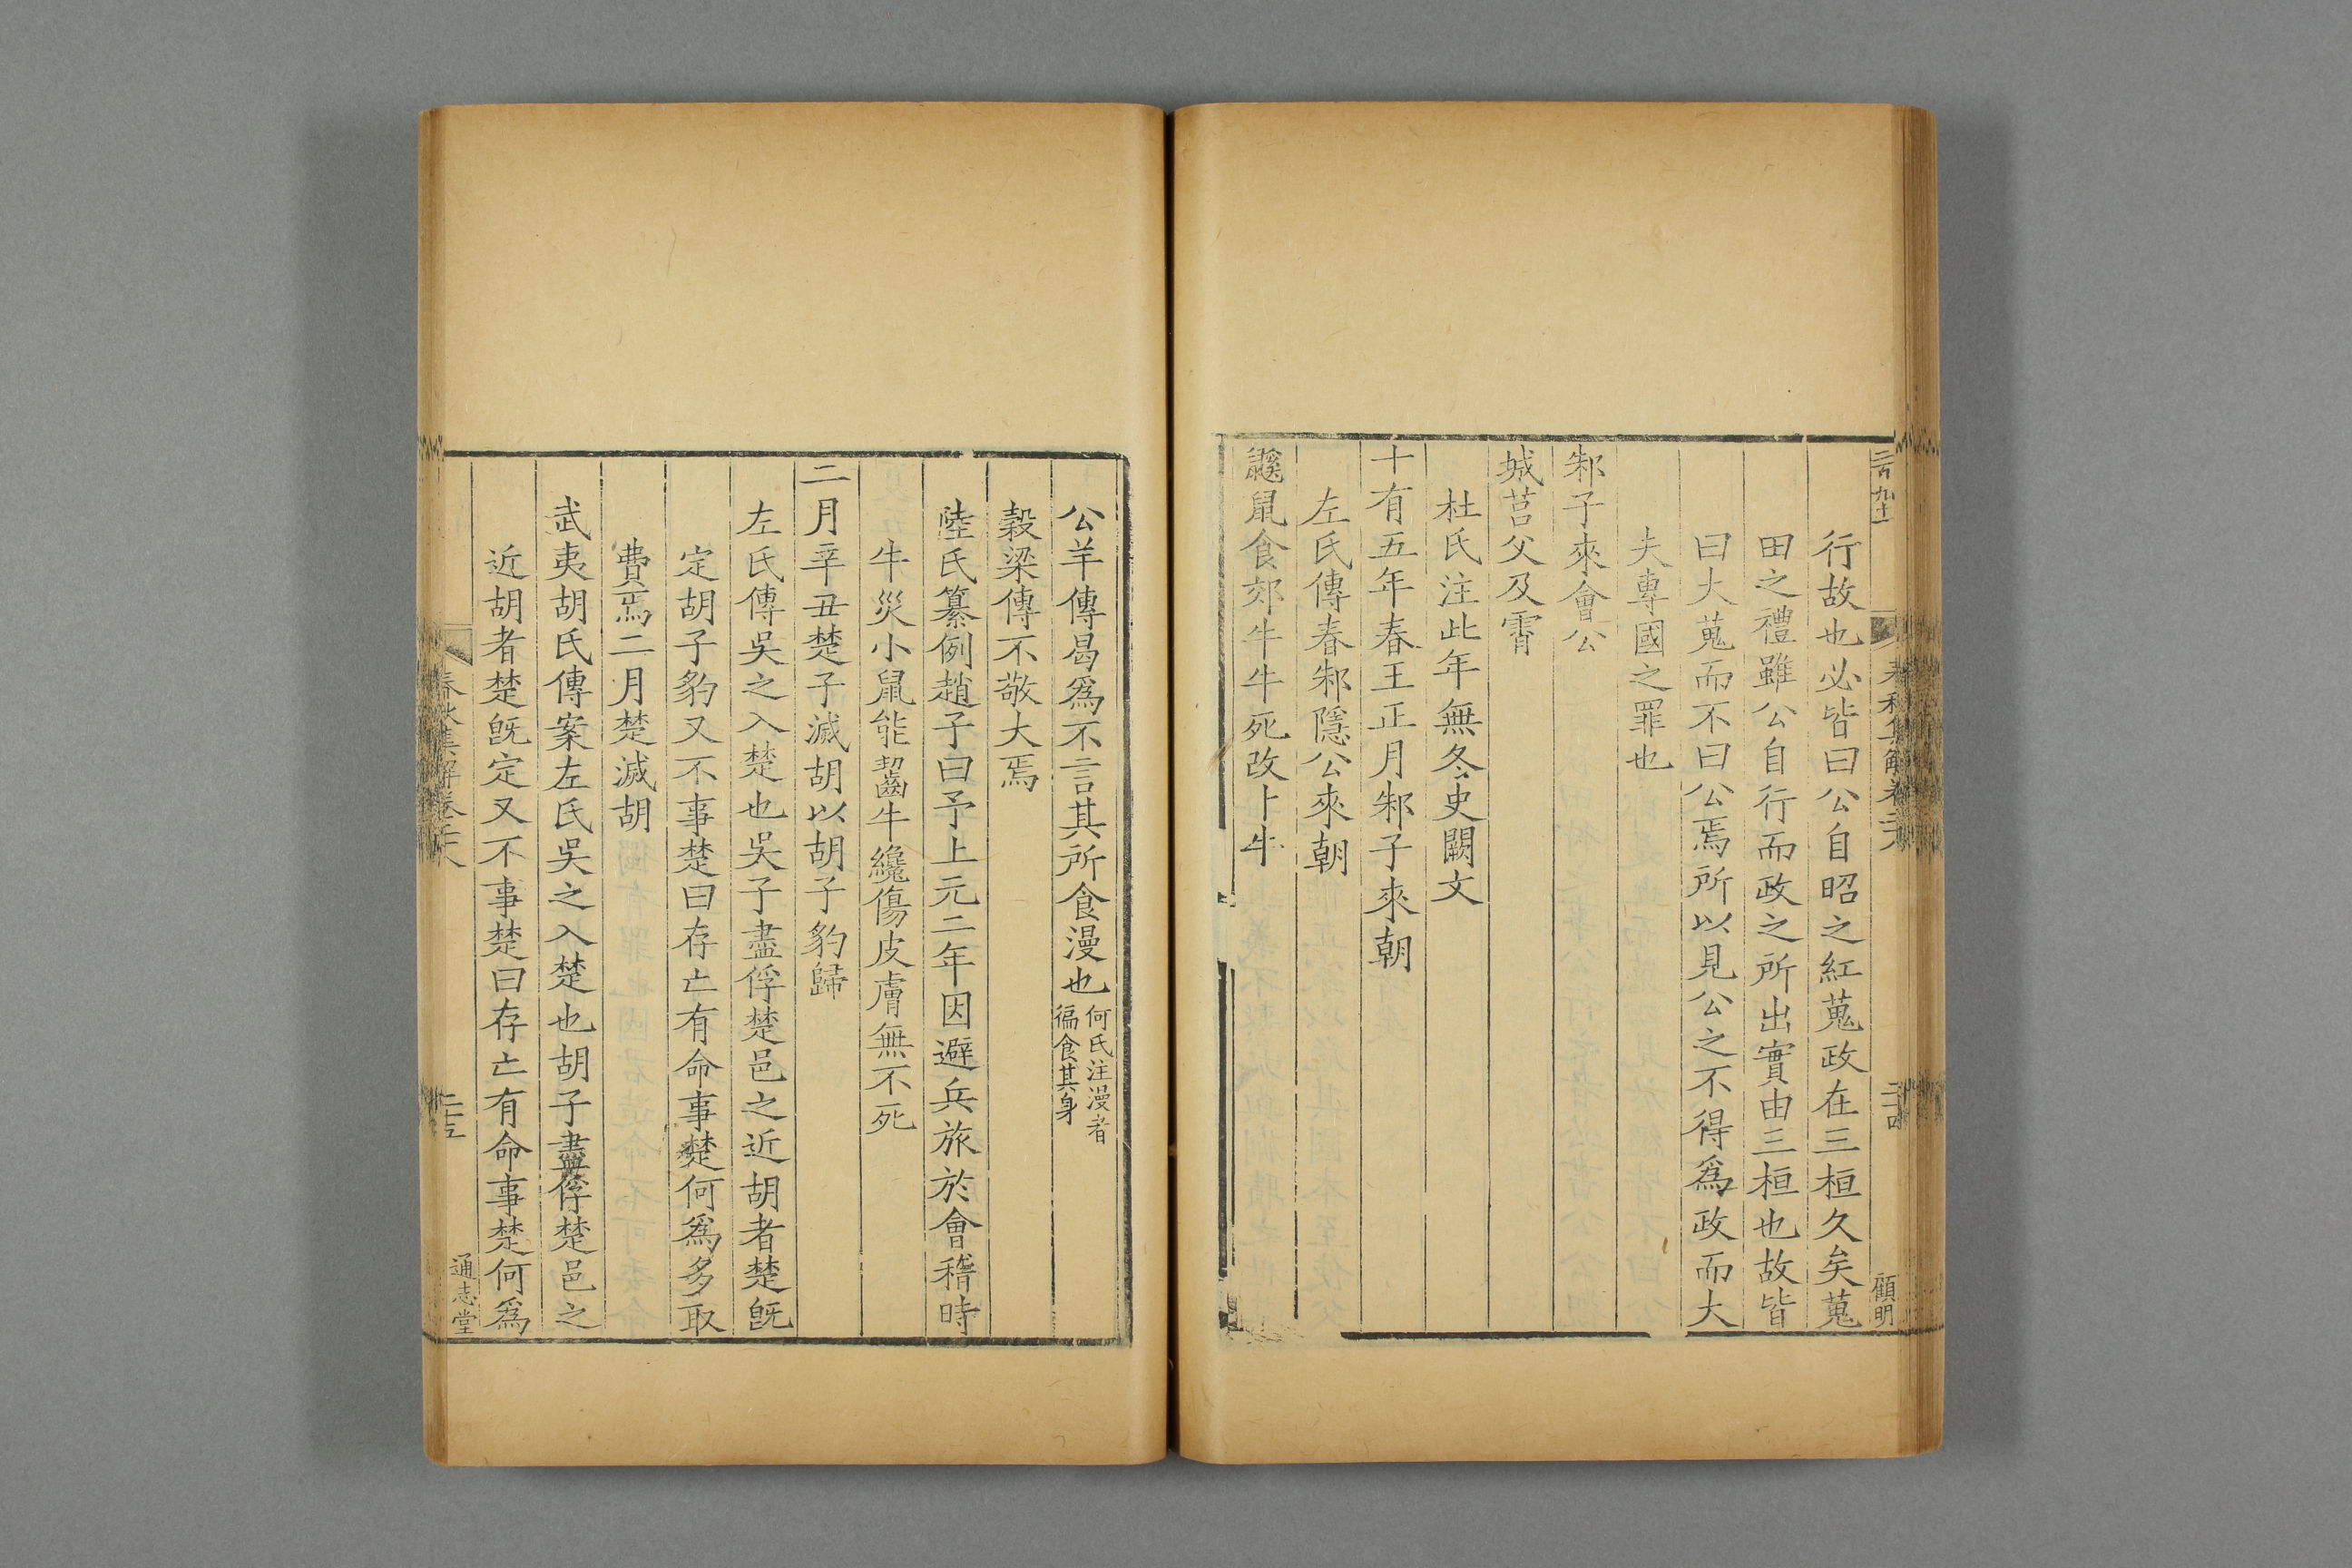 春秋集解卷二十六
二十四
顧明
行故也必皆曰公自昭之紅蒐政在三桓久矣蒐
田之禮雖公自行而政之所出實由三桓也故皆
曰大蒐而不曰公焉所以見公之不得爲政而大
夫專國之罪也
邾子來會公
城莒父及霄
杜氏注此年無冬史闕文
十有五年春王正月邾子來朝
左氏傳春邾隱公來朝
鼷鼠食郊牛牛死改卜牛
公羊傳曷爲不言其所食漫也何氏注漫者徧食其身
穀梁傳不敬大焉
陸氏纂例趙子曰予上元二年因避兵旅於會稽時
牛災小鼠能齧牛纔傷皮膚無不死
二月辛丑楚子滅胡以胡子豹歸
左氏傳吳之入楚也吳子盡俘楚邑之近胡者楚旣
定胡子豹又不事楚曰存亡有命事楚何爲多取
費焉二月楚滅胡
武夷胡氏傳案左氏吳之入楚也胡子盡俘楚邑之
近胡者楚旣定又不事楚曰存亡有命事楚何爲
春秋集解卷二十六
二十五
通志堂